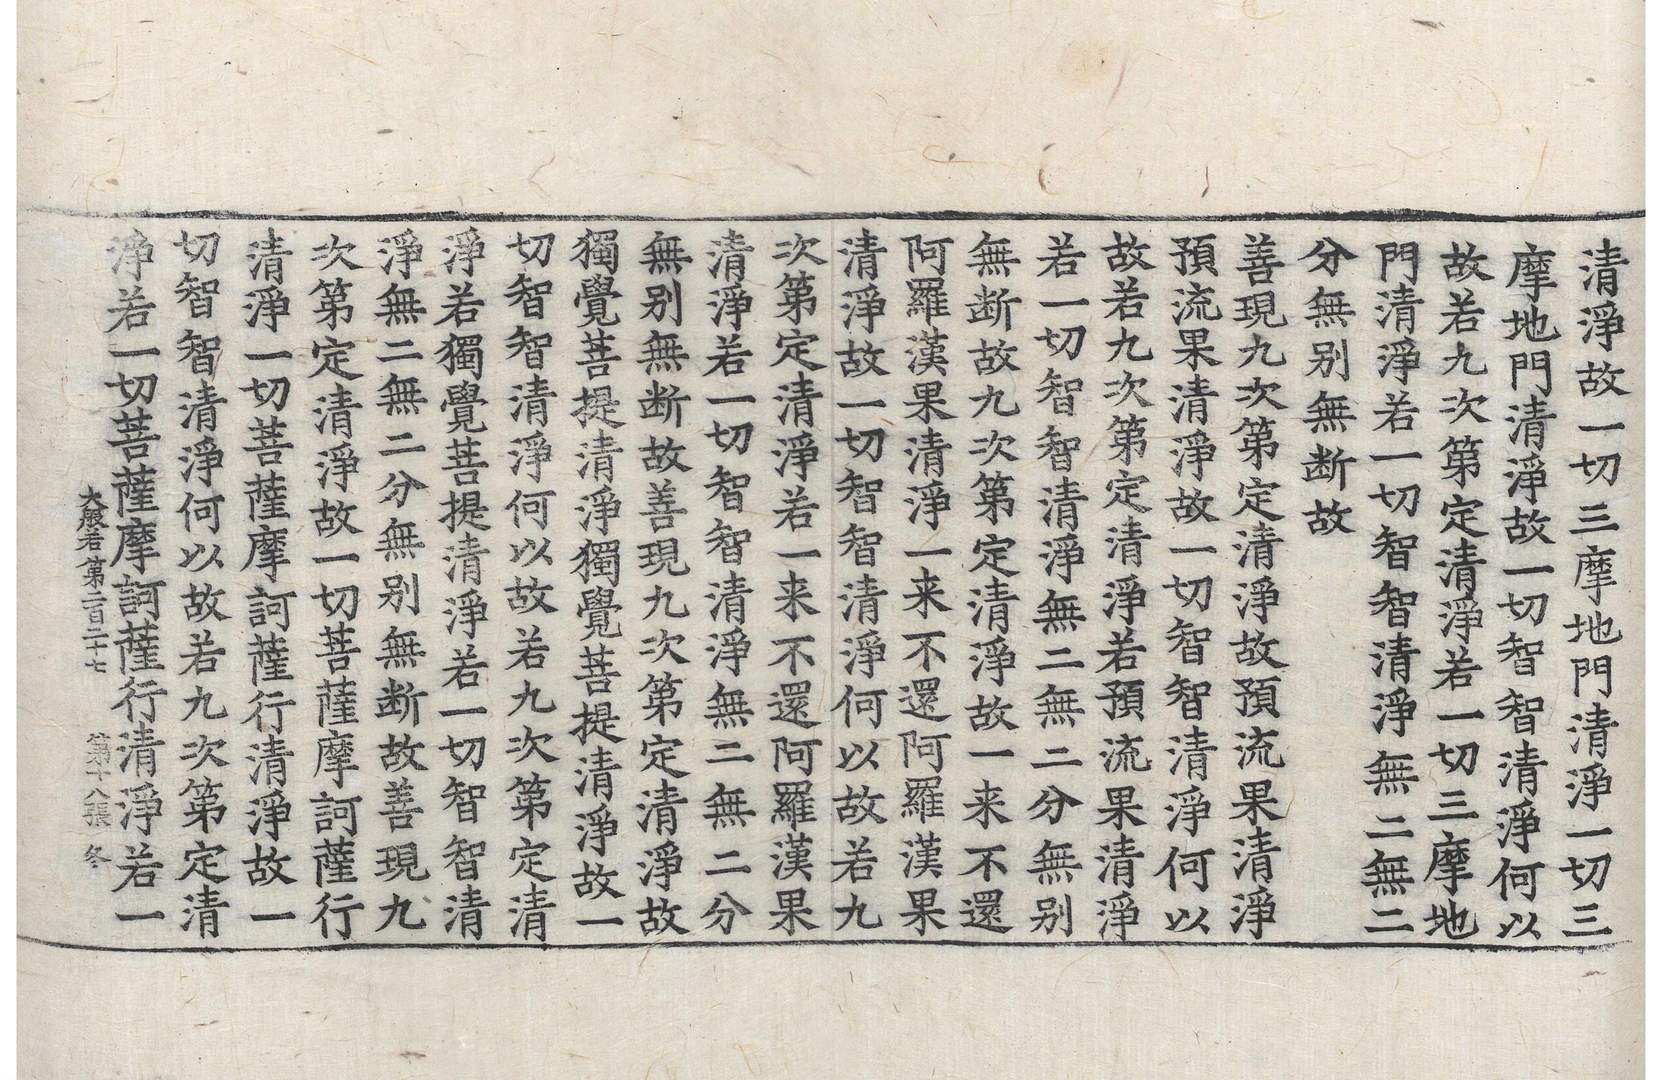 清淨故一切三摩地門清淨一切三
摩地門清淨故一切智智清淨何以
故若九次第定清淨若一切三摩地
門清淨若一切智智清淨無二無二
分無别無断故
善現九次第定清淨故預流果清淨
預流果清淨故一切智智清淨何以
故若九次第定清淨若預流果清淨
若一切智智清淨無二無二分無别
無断故九次第定清淨故一来不還
阿羅漢果清淨一来不還阿羅漢果
清淨故一切智智清淨何以故若九
次第定清淨若一来不還阿羅漢果
清淨若一切智智清淨無二無二分
無别無断故善現九次第定清淨故
獨覺菩提清淨獨覺菩提清淨故一
切智智清淨何以故若九次第定清
淨若獨覺菩提清淨若一切智智清
淨無二無二分無别無断故善現九
次第定清淨故一切菩薩摩訶薩行
清淨一切菩薩摩訶薩行清淨故一
切智智清淨何以故若九次第定清
淨若一切菩薩摩訶薩行清淨若一
大般若第二百二十七 第十八張 冬